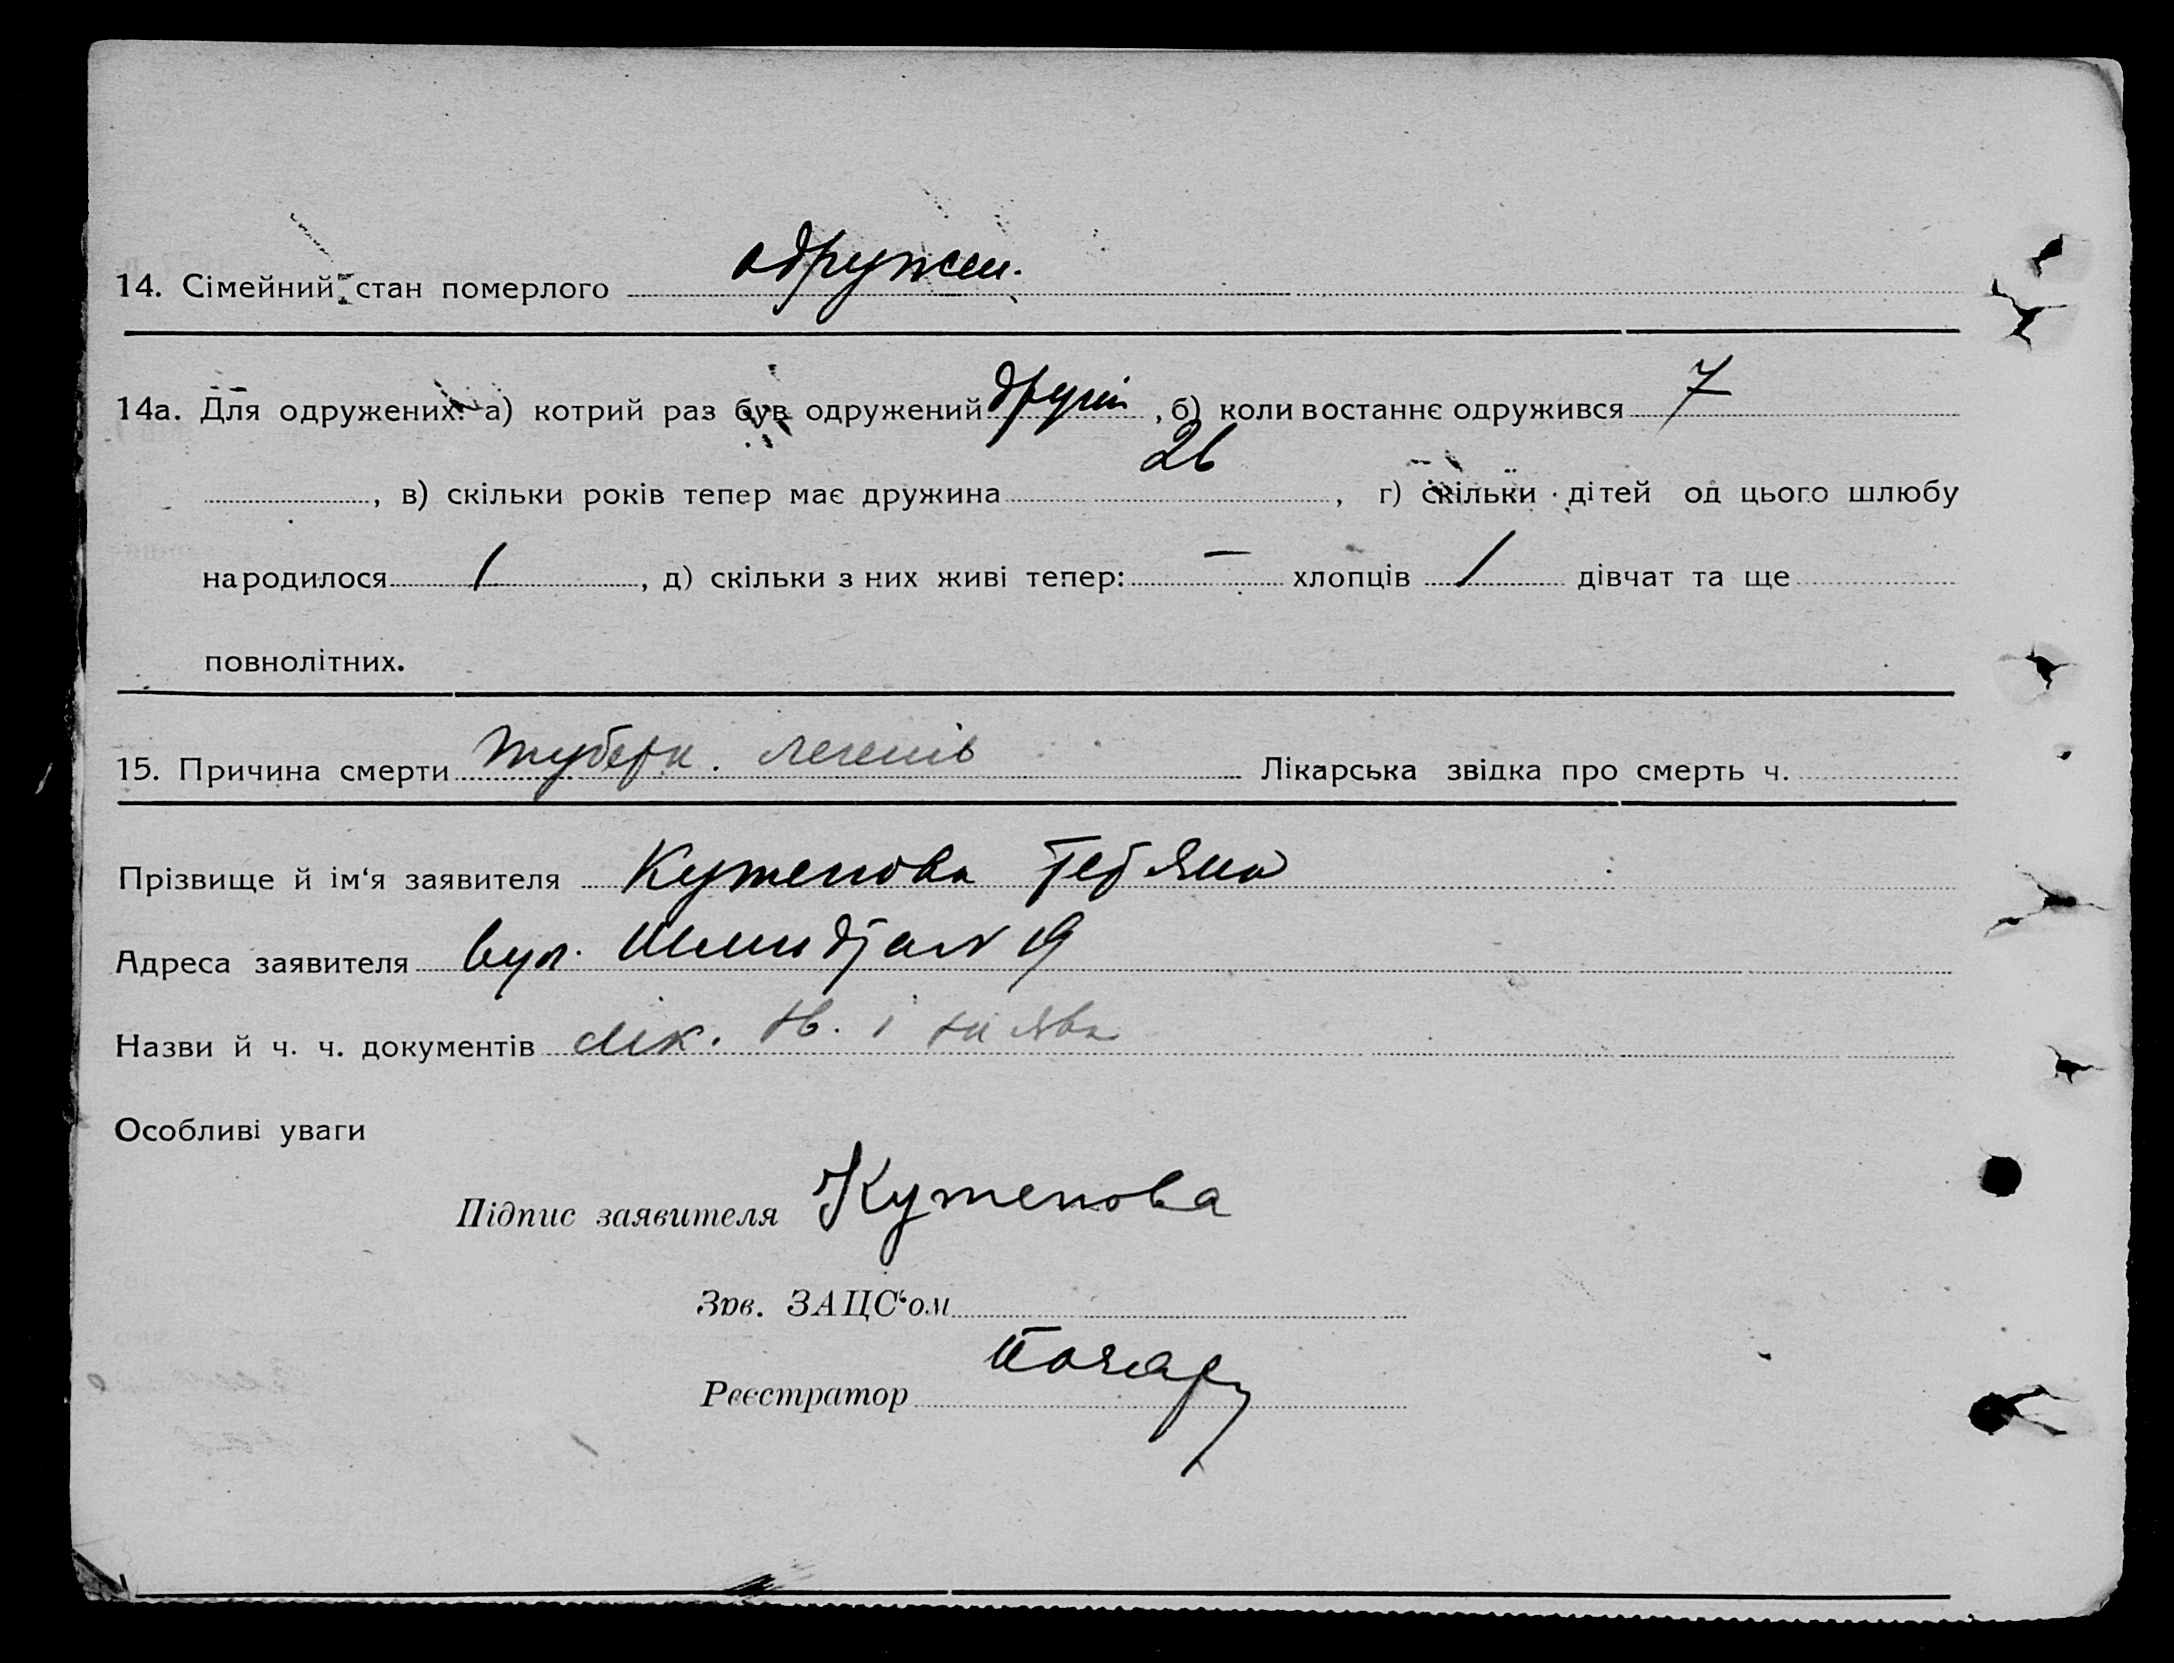 14. Сімейний стан померлого одружен.
14а. Для одружених: а) котрий раз був одружений другий, б) коли востаннє одружився 7
, в) скільки років тепер має дружина 26, г) скільки дітей од цього шлюбу
народилося 1, д) скільки з них живі тепер: — хлопців 1 дівчат та ще
повнолітних.
15. Причина смерти туберк. легенів Лікарська звідка про смерть ч.
Прізвище й ім‘я заявителя Кутепова
Адреса заявителя вул. 19
Назви й ч. ч. документів лік. і заява
Особливі уваги
Підпис заявителя Кутепова
Зав. ЗАЦС‘ом
Реєстратор